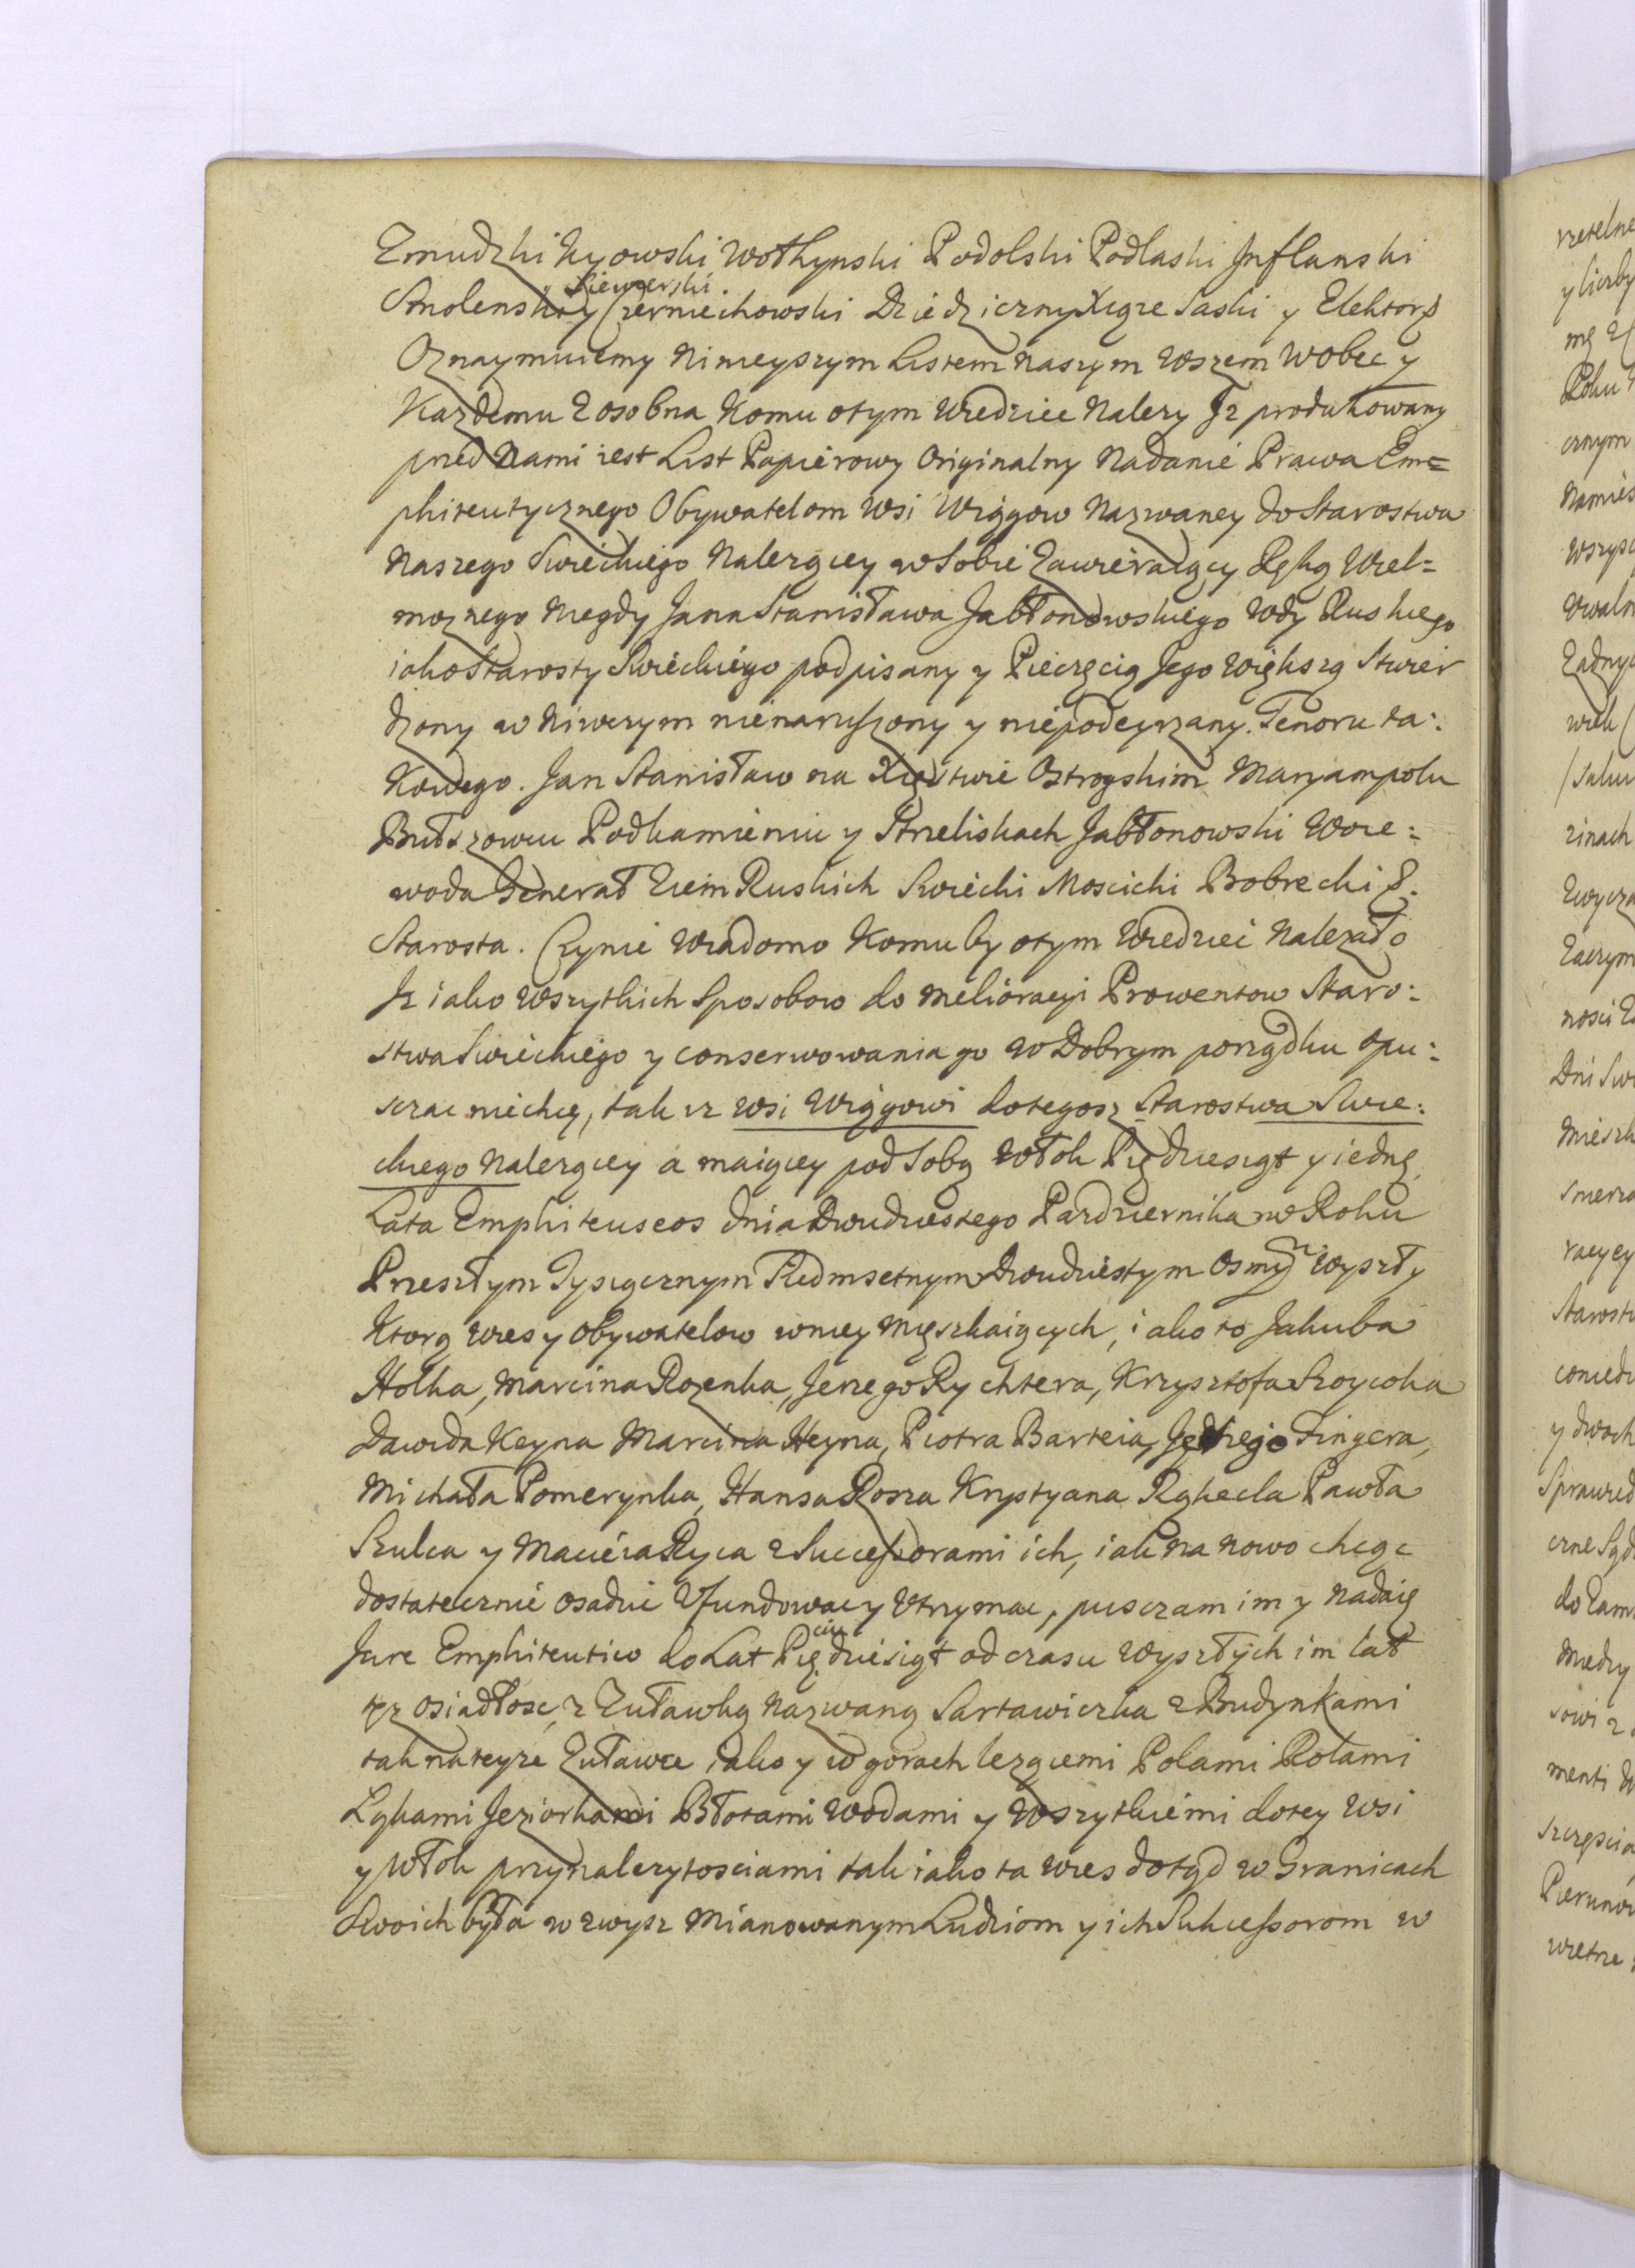 Zmudzki Kyowski Wołhynski Podolski Podlaski Inflanski
Siewierski
Smolenski y Czerniechowski Dziedziczny Xiąze Saski y Elektor
Oznaymuiemy Ninieyszym Listem Naszym Wszem Wobec y
Kazdemu Zosobna Komu otym Wiedziec Nalezy Iz produkowany
przed Nami iest List Papierowy Originalny Nadanie Prawa Em=
phiteutycznego Obywatelom Wsi Wiąggow Nazwaney do Starostwa
Naszego Swieckiego Nalezącey w Sobie Zawieraiący Ręką Wiel=
moznego Niegdy Jana Stanisława Jabłonowskiego Wdy Ruskiego
iako Starosty Swieckiego podpisany y Pieczęcią Jego Większą Stwier
dzony w Niwczym nienaruszony y niepodeyrzany. Tenoru ta:
kowego. Jan Stanisław na Xięstwie Ostrogskim Maryampolu
Butszowcu Podkamieniu y Strzeliskach Jabłonowski Woie:
woda Generał Ziem Ruskich Swiecki Moscicki Bobrecki &.
Starosta. Czynie Wiadomo Komu by otym Wiedziec Nalezało
Iz iako Wszytkich Sposobow do melioracyi Prowentow Staro:
stwa Swieckiego y conserwowania go w Dobrym porządku opu:
szczac niechcę, tak iz Wsi Wiąggowi do tegosz Starostwa Swie:
ckiego Nalezącey a maiącey pod Sobą Włok Piędziesiąt y iednę
Lata Emphiteuseos dnia Dwudziestego Pazdziernika w Roku
Przeszłym Tysiącznym Siedmsetnym Dwudziestym Osmym Wyszły
Ktorą Wies y Obywatelow wniey Mięszkaiących, iako to Jakuba
Holka, Marcina Rozenka, Jerzego Rychtera, Krzysztofa Szoycoka
Dawida Keyna Marcina Heyna, Piotra Barteia, Jędrzeja Fingera,
Michała Pomerynka, Hansa Rosza Krystyana Rąkecla Pawła
Szulca y Macieia Ryca z Successorami ich, iak na nowo chcąc
dostatecznie osadzic Ufundowac y Utrzymac, puszczam im y nadaię
ciu
Jure Emphiteutico do Lat Piędziesiąt od czasu Wyszłych im lat
tęz osiadłosc, z Zuławką Nazwaną Sartawiczka z Budynkami
tak na teyze Zuławce iako y w gorach lezącemi Polami Rolami
Łąkami Jeziorkami Błotami Wodami y Wszytkiemi do tey Wsi
y Włok przynalezytosciami tak iako ta wies dotąd w Granicach
Swoich była w zwysz Mianowanym Ludziom y ich Sukcessorom w